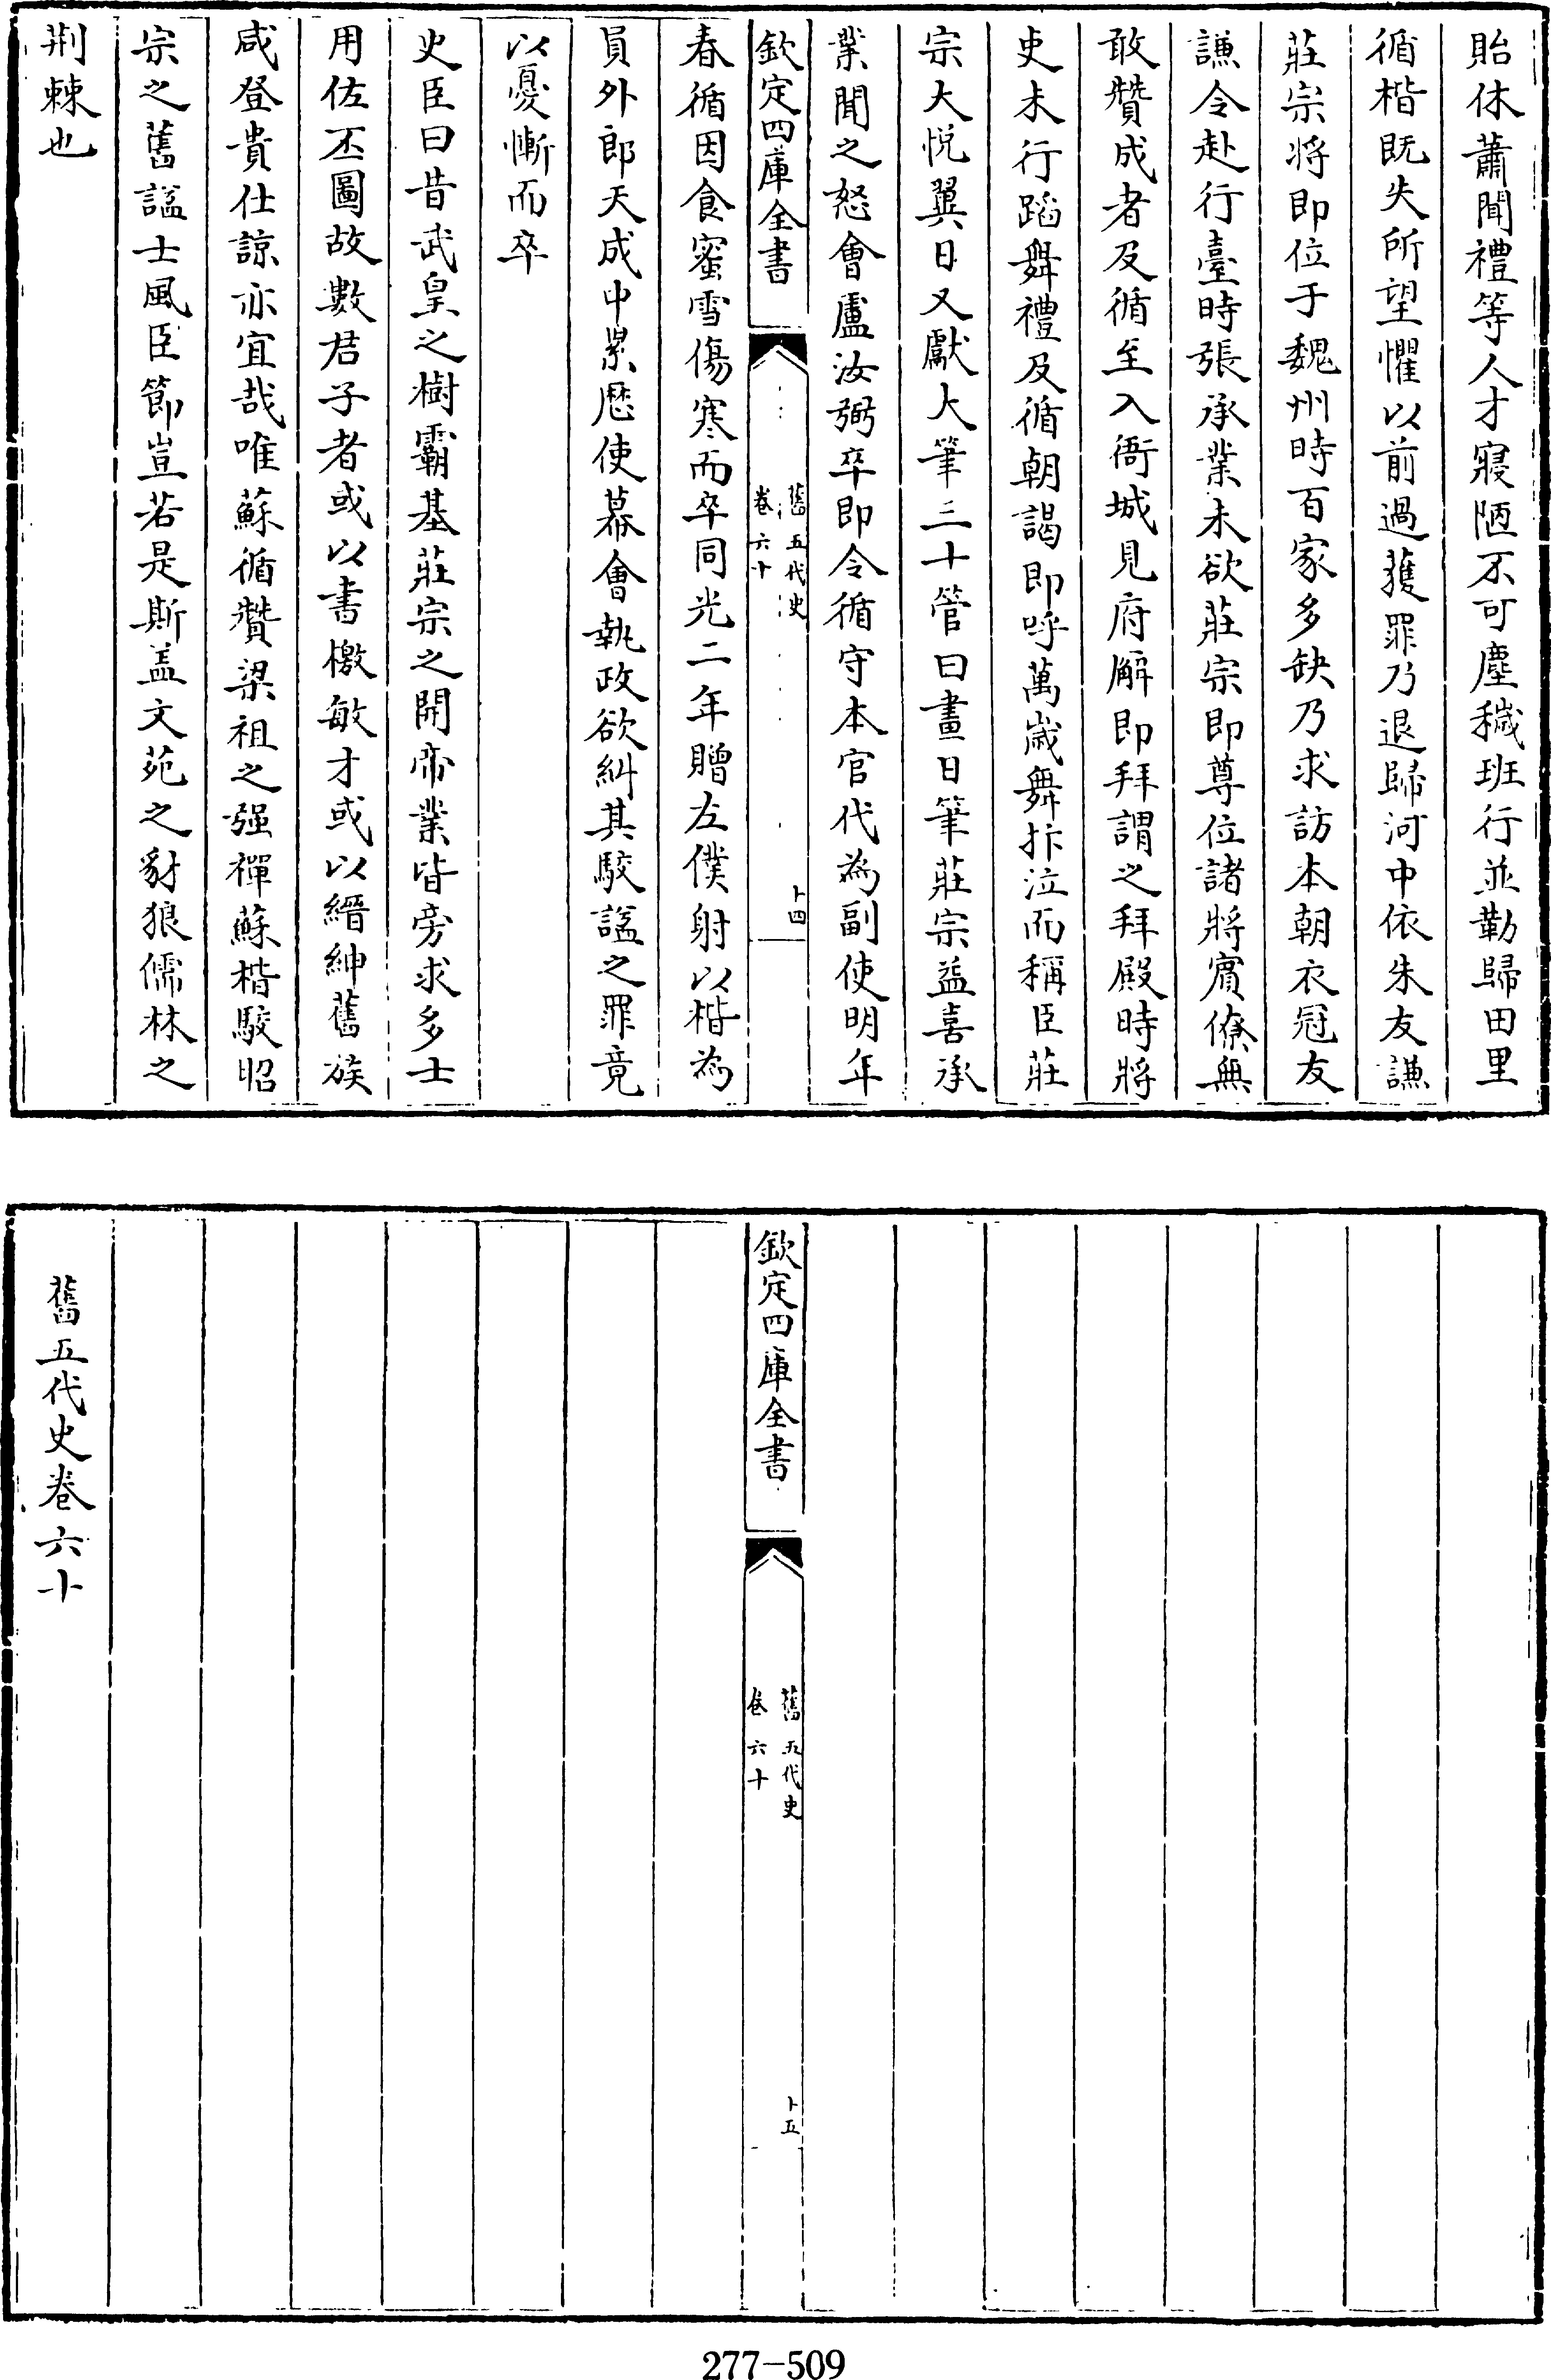 貽休蕭聞禮等人才寢陋不可塵穢班行並勒歸田里
循楷既失所望懼以前過獲罪乃退歸河中依朱友謙
莊宗将即位于魏州時百家多缺乃求訪本朝衣冠友
謙令赴行臺時張承業未欲莊宗即尊位諸將賓僚無
敢贊成者及循至入衙城見府廨即拜謂之拜殿時將
吏未行蹈舞禮及循朝謁即呼萬歲舞抃泣而稱臣莊
宗大悅翼日又獻大筆三十管曰畫日筆莊宗益喜承
業聞之怒會盧汝弼卒即令循守本官代為副使明年
欽定四庫全書
舊五代史
卷六十
十四
春循因食蜜雪傷寒而卒同光二年贈左僕射以楷為
員外郎天成中累歷使幕會執政欲糾其駮諡之罪竟
以憂慚而卒
史臣曰昔武皇之樹霸基莊宗之開帝業皆旁求多士
用佐丕圖故數君子者或以書檄敏才或以縉紳舊族
咸登貴仕諒亦宜哉唯蘇循贊梁祖之强禪蘇楷駮昭
宗之舊諡士風臣節豈若是斯盖文苑之豺狼儒林之
荆棘也
欽定四庫全書
舊五代史
卷六十
十五
舊五代史卷六十
277-509